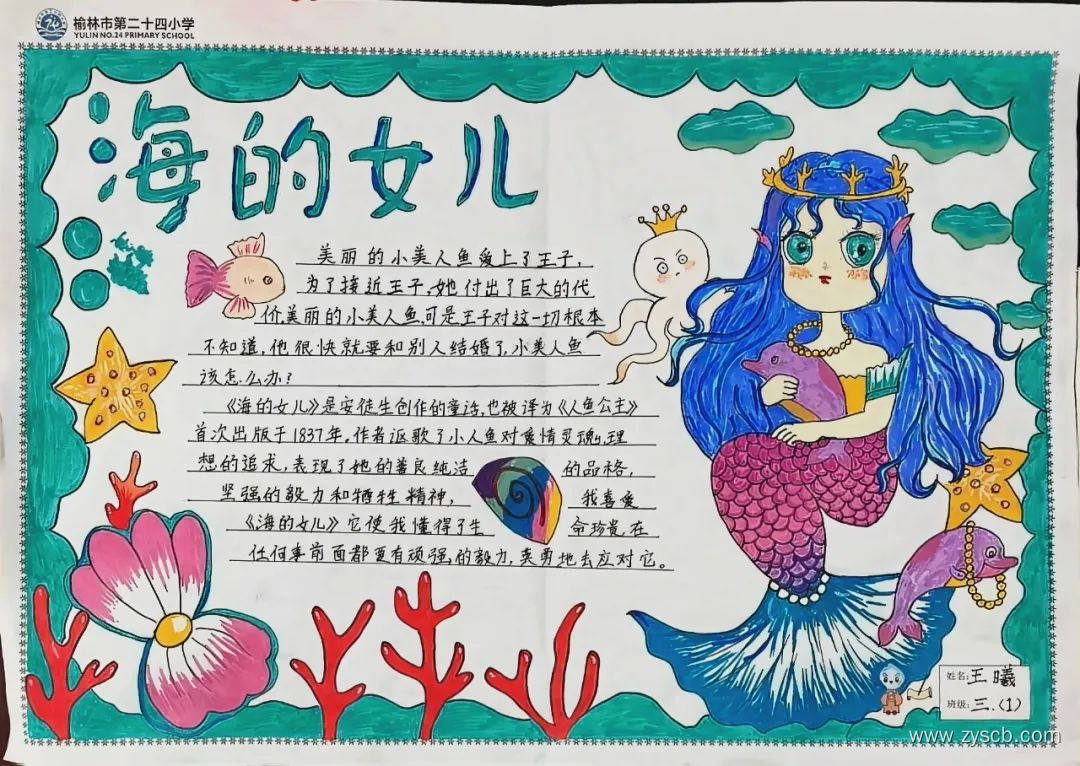 榆林市第二十四小学
YULIN NO.24 PRIMARY SCHOOL
海的女儿
美丽的小美人鱼爱上了王子,
为了接近王子,她付出了巨大的代
价,美丽的小美人鱼,可是王子对这一切根本
不知道,他很快就要和别人结婚了,小美人鱼
该怎么办?
《海的女儿》是安徒生创作的童话,也被译为《人鱼公主》
首次出版于1837年,作者讴歌了小人鱼对爱情、灵魂、理
想的追求,表现了她的善良纯洁的品格,
坚强的毅力和牺牲精神,我喜爱
《海的女儿》它使我懂得了生命珍贵,在
任何事前面都要有顽强的毅力,英勇地去应对它。
姓名:王曦
班级:三.(1)
www.zyscb.com